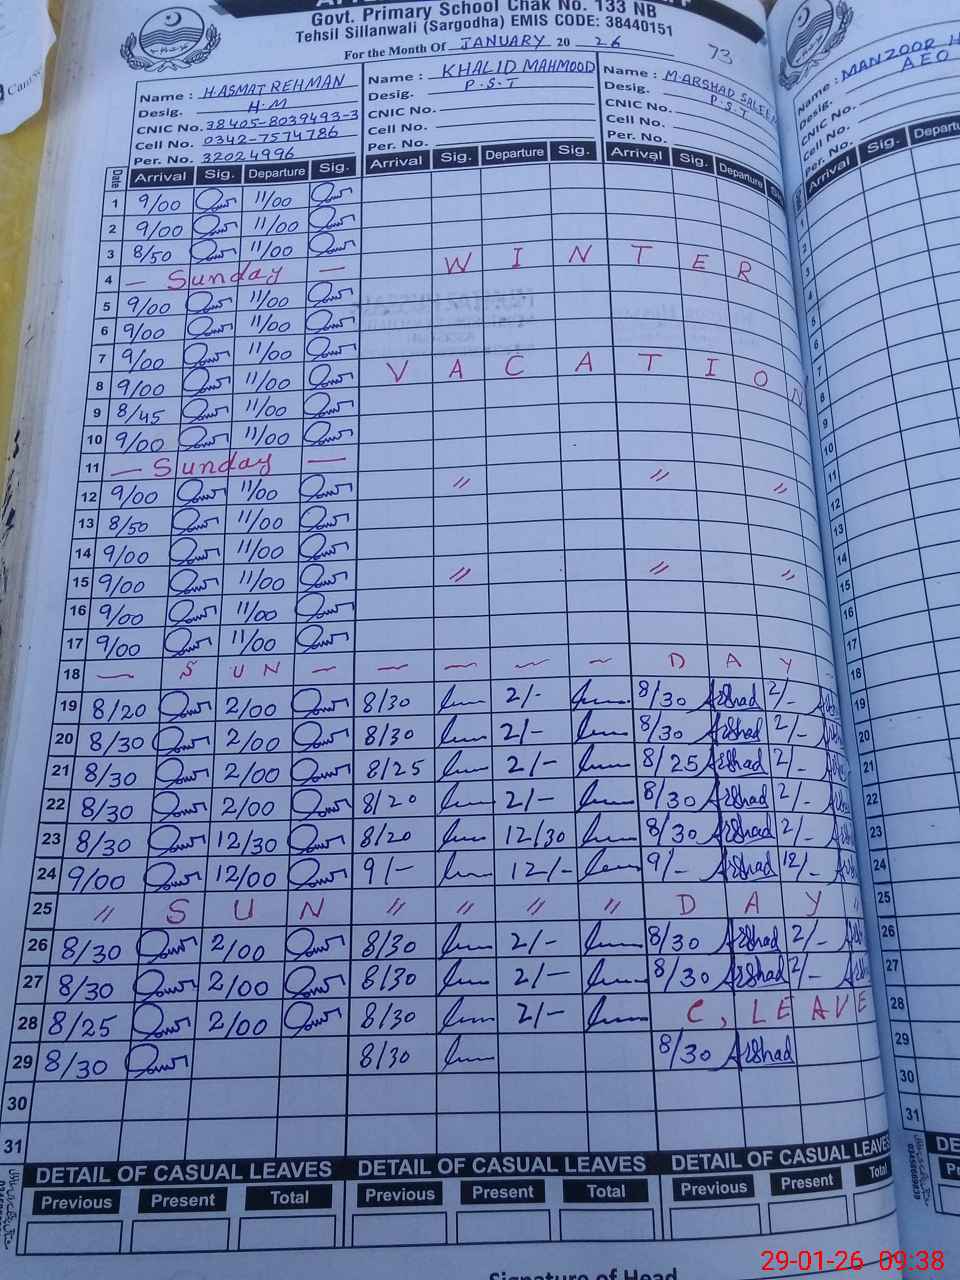 Govt. Primary School Chak No. 133 NB
Tehsil Sillanwali (Sargodha) EMIS CODE: 38440151
For the Month Of JANUARY 20 26
73
Name : HASMAT REHMAN Name : KHALID MAHMOOD Name : M. ARSHAD SALEEM
Desig. H.M Desig. P.S.T Desig. P.S.T
CNIC No. 38405-8039493-3 CNIC No. CNIC No.
Cell No. 0342-7574786 Cell No. Cell No.
Per. No. 32024996 Per. No. Per. No.
Date Arrival Sig. Departure Sig. Arrival Sig. Departure Sig. Arrival Sig. Departure
1 9/00 11/00
2 9/00 11/00
3 8/50 11/00 W I N T E R
4 — Sunday —
5 9/00 11/00
6 9/00 11/00
7 9/00 11/00
8 9/00 11/00 V A C A T I O N
9 8/45 11/00
10 9/00 11/00
11 — Sunday —
12 9/00 11/00 〃 〃 〃
13 8/50 11/00
14 9/00 11/00
15 9/00 11/00 〃 〃 〃
16 9/00 11/00
17 9/00 11/00
18 — S U N — — — — — D A Y
19 8/20 2/00 8/30 2/- 8/30 Arshad 2/-
20 8/30 2/00 8/30 2/- 8/30 Arshad 2/-
21 8/30 2/00 8/25 2/- 8/25 Arshad 2/-
22 8/30 2/00 8/20 2/- 8/30 Arshad 2/-
23 8/30 12/30 8/20 12/30 8/30 Arshad 2/-
24 9/00 12/00 9/- 12/- 9/- Arshad 12/-
25 〃 S U N 〃 〃 〃 〃 D A Y
26 8/30 2/00 8/30 2/- 8/30 Arshad 2/-
27 8/30 2/00 8/30 2/- 8/30 Arshad 2/-
28 8/25 2/00 8/30 2/- C, LEAVE
29 8/30 8/30 8/30 Arshad
30
31
DETAIL OF CASUAL LEAVES DETAIL OF CASUAL LEAVES DETAIL OF CASUAL LEAVES
Previous Present Total Previous Present Total Previous Present Total
Signature of Head
Name : MANZOOR
Desig. AEO
CNIC No.
Cell No.
Per. No.
Arrival Sig.
1
2
3
4
5
6
7
8
9
10
11
12
13
14
15
16
17
18
19
20
21
22
23
24
25
26
27
28
29
30
31
29-01-26 09:38